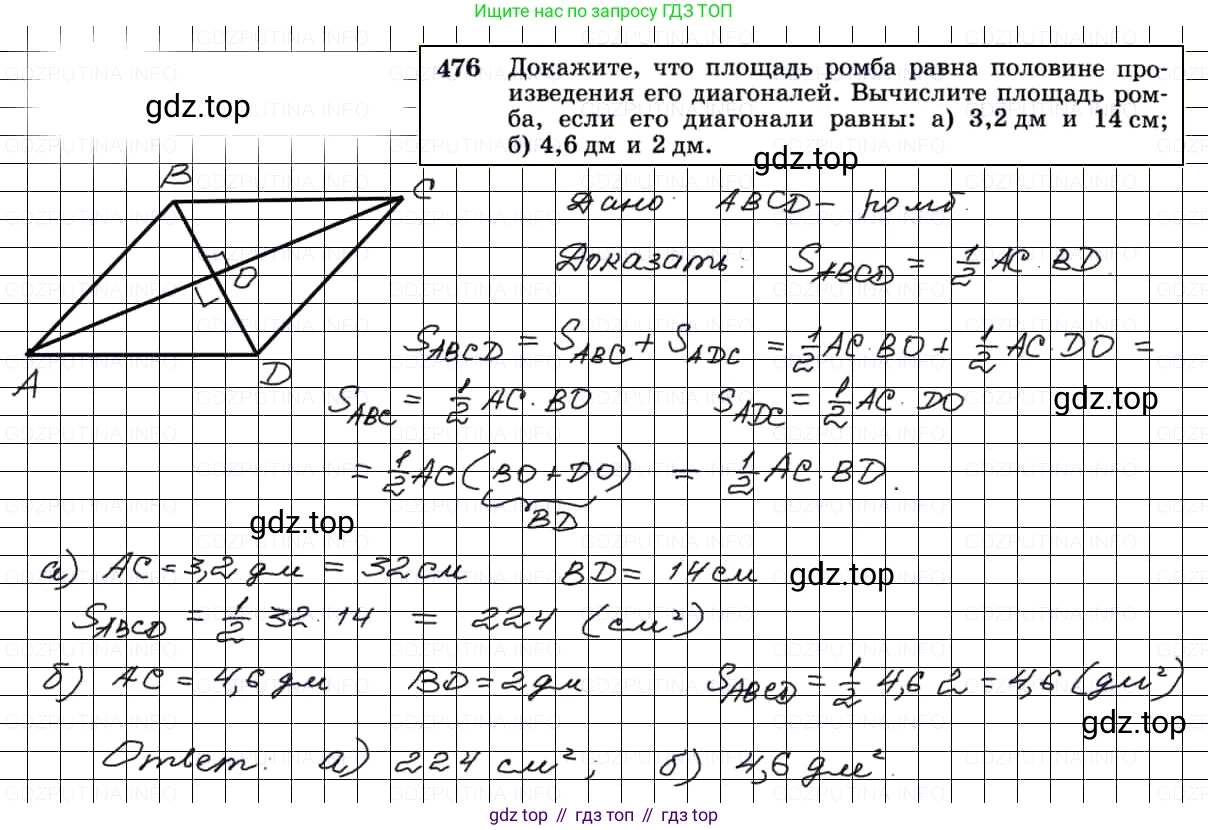 Ищите нас по запросу ГДЗ ТОП
476 Докажите, что площадь ромба равна половине про-
изведения его диагоналей. Вычислите площадь ром-
ба, если его диагонали равны: а) 3,2 дм и 14 см;
б) 4,6 дм и 2 дм.
gdz.top
gdz.top
B
C
O
A
D
Дано: ABCD – ромб.
Доказать: S_ABCD = 1/2 AC · BD.
S_ABCD = S_ABC + S_ADC = 1/2 AC · BO + 1/2 AC · DO =
S_ABC = 1/2 AC · BO S_ADC = 1/2 AC · DO
gdz.top
= 1/2 AC (BO + DO) = 1/2 AC · BD.
BD
gdz.top
а) AC = 3,2 дм = 32 см BD = 14 см
gdz.top
S_ABCD = 1/2 32 · 14 = 224 (см²)
б) AC = 4,6 дм BD = 2 дм S_ABCD = 1/2 4,6 2 = 4,6 (дм²)
gdz.top
Ответ: а) 224 см²; б) 4,6 дм².
gdz top // гдз топ // gdz top
GDZPUTINA.INFO